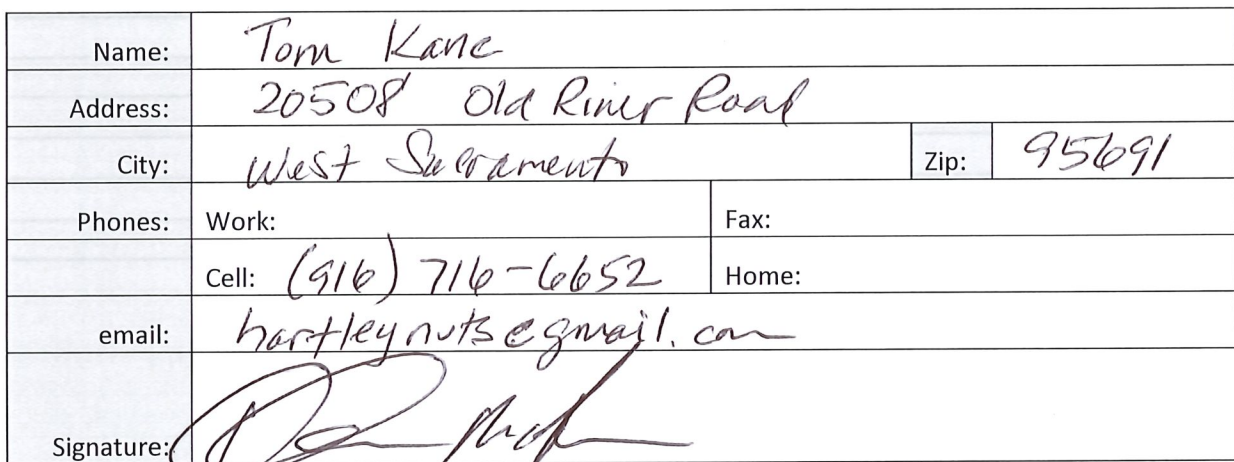 Name: Tom Kane
Address: 20508 Old River Road
City: West Sacramento Zip: 95691
Phones: Work: Fax:
Cell: (916) 716-6652 Home:
email: hartleynuts@gmail.com
Signature: